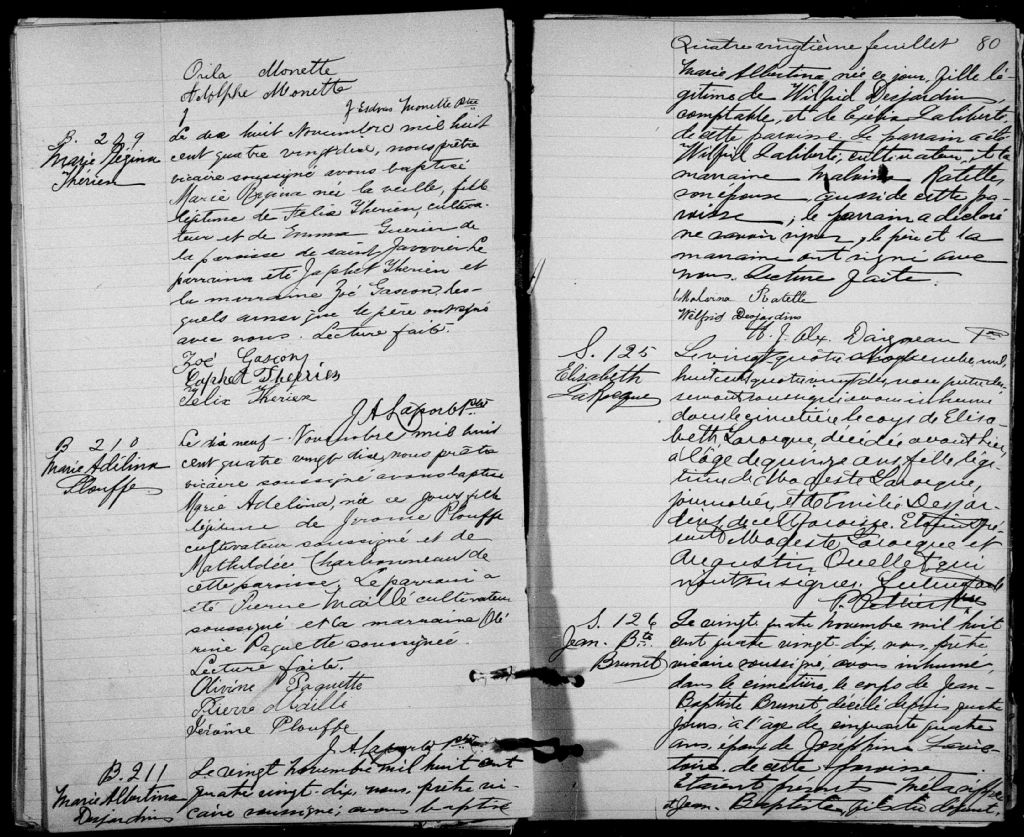 Orila Monette
Adolphe Monette
J Esdras Monette Ptre
B. 209
Marie Régina
Thérien
Le dix huit Novembre mil huit
cent quatre vingt dix, nous prêtre
vicaire soussigné avons baptisé
Marie Régina née la veille, fille
légitime de Félix Thérien, cultiva-
teur et de Emma Guérier de
la paroisse de saint Janvier Le
parrain a été Japhet Thérien et
la marraine Zoé Gascon, les-
quels ainsi que le père ont signé
avec nous. Lecture faite.
Zoé Gascon
Japhet Therien
Félix Therien
J. A. Laporte Ptre
B 210
Marie Adélina
Plouffe
Le dix neuf Novembre mil huit
cent quatre vingt dix, nous prêtre
vicaire soussigné avons baptisé
Marie Adelina, née ce jour, fille
légitime de Jérome Plouffe
cultivateur soussigné et de
Mathildée Charbonneau de
cette paroisse. Le parrain a
été Pierre Maillé cultivateur
soussigné et la marraine Oli
rine Paquette soussignée.
Lecture faite.
Olivine Paquette
Pierre Maillé
Jérôme Plouffe
J. A. Laporte Ptre
B. 211
Marie Albertina
Desjardins
Le vingt novembre mil huit cent
quatre vingt dix, nous, prêtre vi-
caire soussigné, avons baptisé
Quatre vingtième feuillet 80
Marie Albertina, née ce jour, fille lé-
gitime de Wilfrid Desjardins,
comptable, et de Exélia Laliberté,
de cette paroisse. Le parrain a été
Wilfrid Laliberté, cultivateur, et la
marraine Malvina Ratelle,
son épouse, aussi de cette pa-
roisse; le parrain a déclaré
ne savoir signer, le père et la
marraine ont signé avec
nous. Lecture faite.
Malvina Ratelle
Wilfrid Desjardins
J. Alx. Daigneau Ptre
S. 125
Elisabeth
Larocque
Le vingt quatre Novembre mil
huit cent quatre vingt dix, nous prêtre
soussigné avons inhumé
dans le cimetière le corps de Elisa-
beth Larocque, décédée avant hier,
à l'âge de quinze ans fille légi-
time de Modeste Larocque,
journalier, et de Emilie Desjar-
dins de cette Paroisse. Etaient pré-
sents Modeste Larocque et
Augustin Ouellet qui
n'ont su signer. Lecture faite
P. Pelletier Ptre
S. 126
Jean. Bte
Brunet
Le vingt quatre novembre mil huit
cent quatre vingt dix, nous, prêtre
vicaire soussigné, avons inhumé
dans le cimetière, le corps de Jean-
Baptiste Brunet, décédé depuis quatre
jours, à l'age de cinquante quatre
ans, époux de Joséphine
de cette paroisse
Etaient présents
et Jean. Baptiste, fils du défunt,